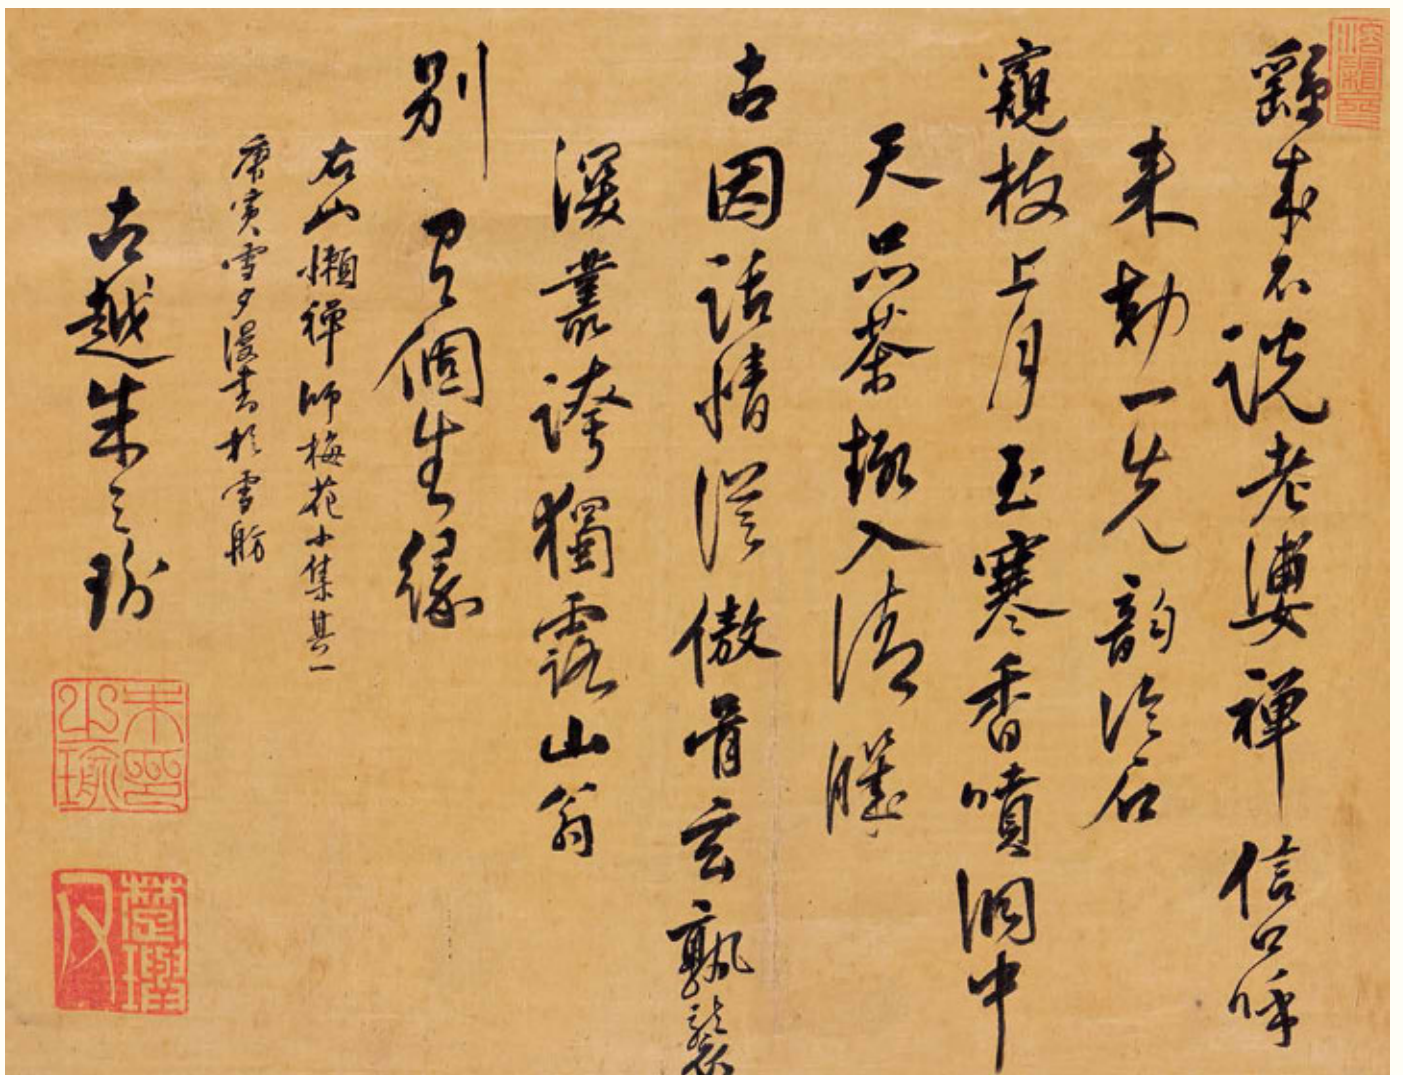 繇來不說老婆禪信口呼
来勑一先韵冷石
窺枝上月玉寒香噴洞中
天品茶趣入清臞
古因話情從傲骨玄孰襲
深叢誇獨露山翁
別有個生緣
右山懶禪師梅花小集其一
庚寅雪夕漫書於雪舫
古越朱之瑜
朱印之瑜
楚璵